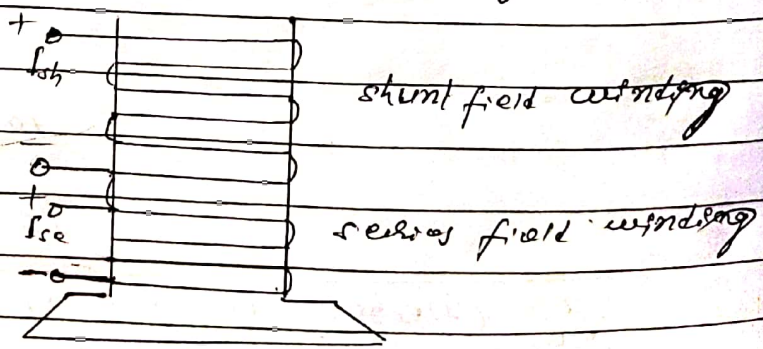 +
Ish
shunt field winding
-
+
Ise
series field winding
-